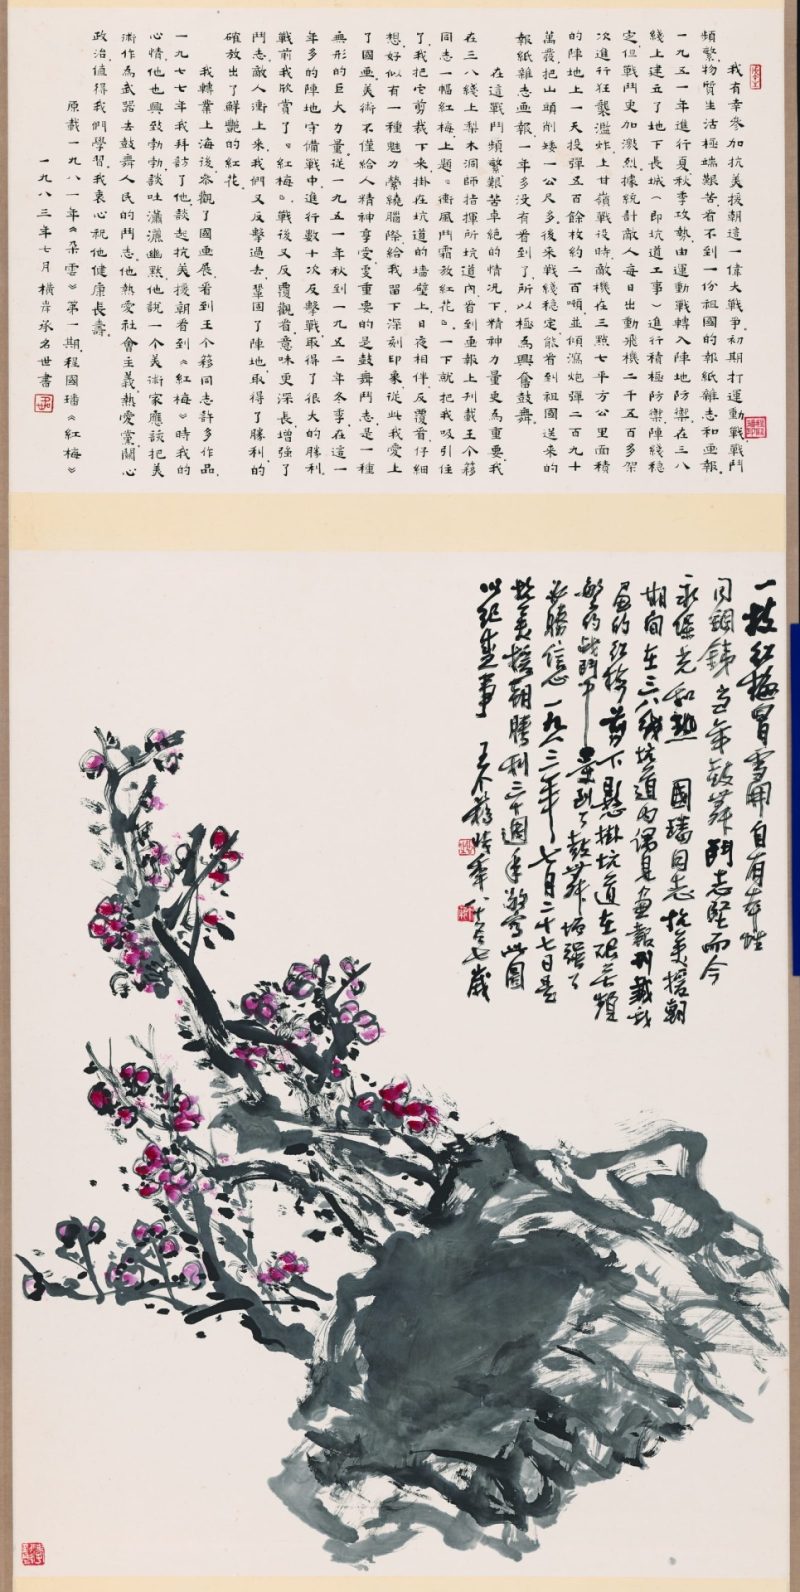 我有幸參加抗美援朝這一偉大戰爭初期打運動戰戰鬥
頻繁物質生活極端艱苦看不到一份祖國的報紙雜志和画報
一九五一年進行夏秋季攻勢由運動戰轉入陣地防禦在三八
綫上建立了地下長城(即坑道工事)進行積極防禦陣綫穩
定但戰鬥更加激烈據統計敵人每日出動飛機二千五百多架
次進行狂襲濫炸上甘嶺戰役時敵機在三點七平方公里面積
的陣地上一天投彈五百餘枚約二百噸並傾瀉炮彈二百九十
萬發把山頭削矮一公尺多後来戰綫穩定能看到祖國送来的
報紙雜志画報一年多没有看到了所以極為興奮鼓舞
在這戰鬥頻繁艱苦卓絶的情况下精神力量更為重要我
在三八綫上梨木洞師指揮所坑道內看到画報上刋載王个簃
同志一幅紅梅上題《衝風鬥霜放紅花》一下就把我吸引住
了我把它剪裁下来掛在坑道的墙壁上日夜相伴反覆看仔細
想好似有一種魅力縈繞腦際給我留下深刻印象從此我愛上
了國画美術不僅給人精神享受更重要的是鼓舞鬥志是一種
無形的巨大力量從一九五一年秋到一九五二年冬季在這一
年多的陣地守備戰中進行數十次反擊戰取得了很大的勝利
戰前我欣賞了《紅梅》戰後又反覆觀看意味更深長增强了
鬥志敵人衝上来我們又反擊過去鞏固了陣地取得了勝利的
確放出了鮮艷的紅花
我轉業上海後參觀了國画展看到王个簃同志許多作品
一九七七年我拜訪了他談起抗美援朝看到《紅梅》時我的
心情他也興致勃勃談吐瀟灑幽默他説一个美術家應該把美
術作為武器去鼓舞人民的鬥志他熱愛社會主義熱愛黨關心
政治值得我們學習我衷心祝他健康長壽
原載一九八一年《朵雲》第一期程國璠《紅梅》
一九八三年七月横岸承名世書
一枝紅梅冒雪開自有本性
同鋼銕當年鼓舞鬥志堅而今
永保光和熱 國璠同志抗美援朝
期间在三八綫坑道内偶見画報刋載我
画的红梅剪下懸掛坑道在艰苦頻
繁的战鬥中受到了鼓舞增强了
必勝信心一九八三年七月二十七日是
抗美援朝勝利三十週年敬寫此圖
以紀盛事 王个簃時年八十又七歲